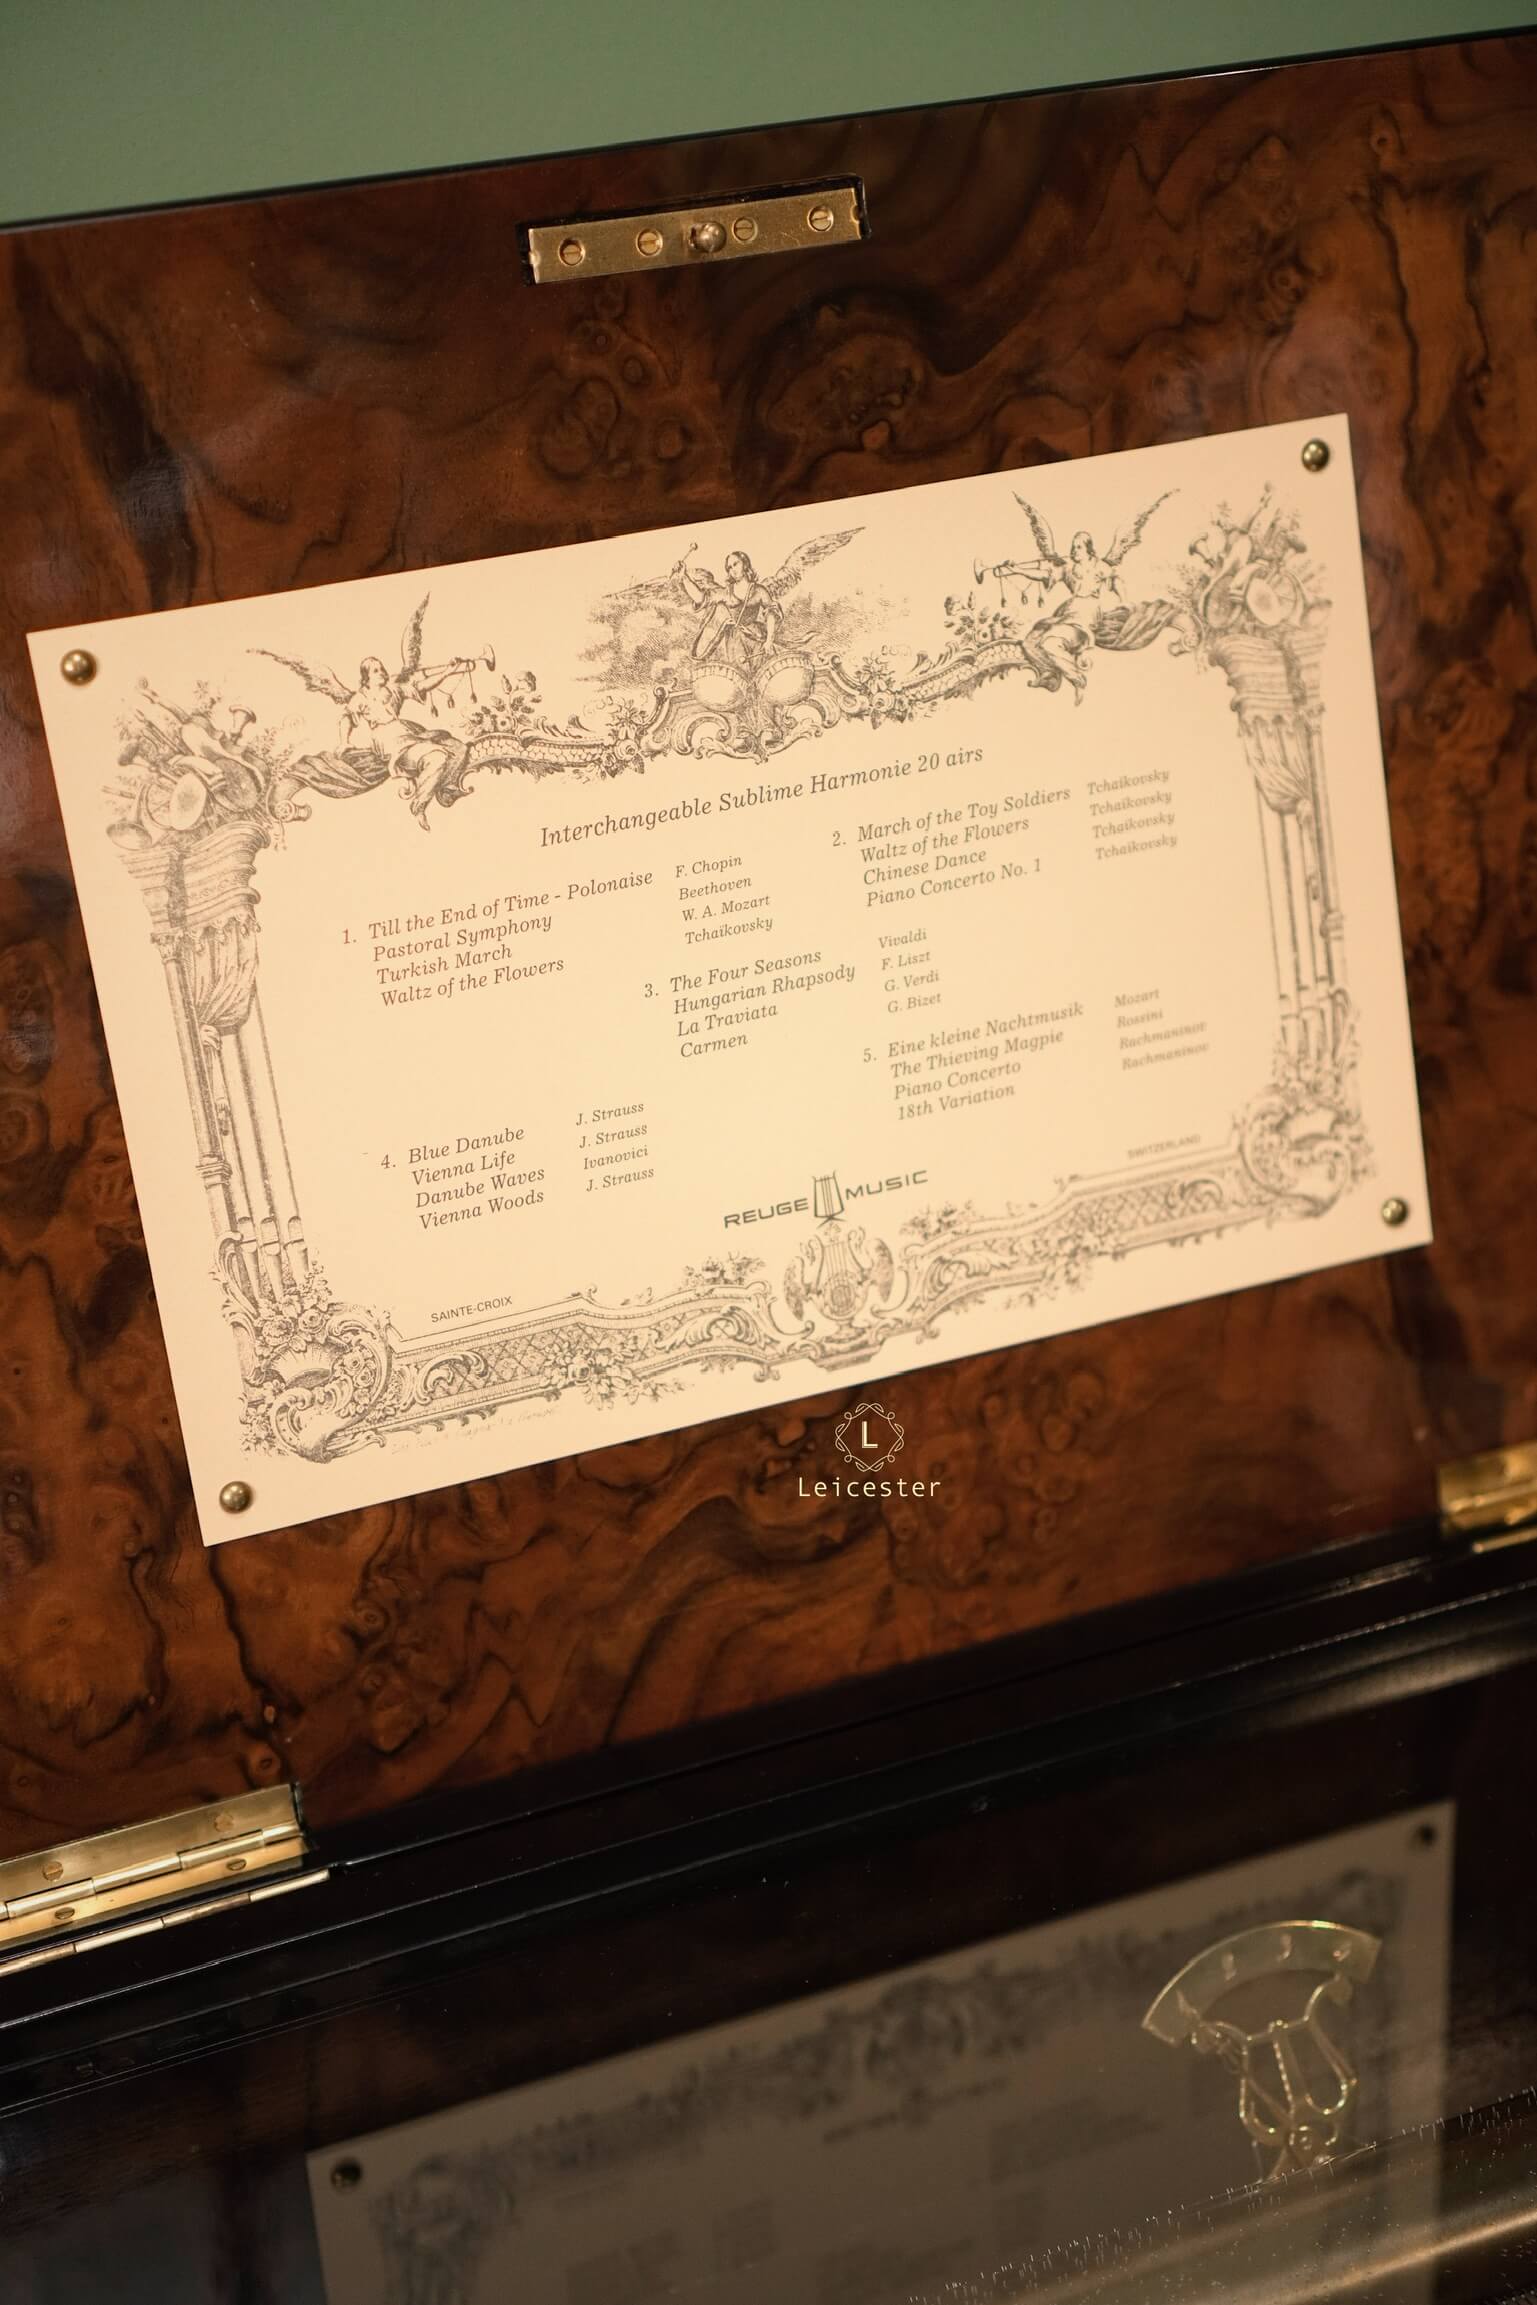 Interchangeable Sublime Harmonie 20 airs
1. Till the End of Time - Polonaise F. Chopin
Pastoral Symphony Beethoven
Turkish March W. A. Mozart
Waltz of the Flowers Tchaïkovsky
2. March of the Toy Soldiers Tchaïkovsky
Waltz of the Flowers Tchaïkovsky
Chinese Dance Tchaïkovsky
Piano Concerto No. 1 Tchaïkovsky
3. The Four Seasons Vivaldi
Hungarian Rhapsody F. Liszt
La Traviata G. Verdi
Carmen G. Bizet
4. Blue Danube J. Strauss
Vienna Life J. Strauss
Danube Waves Ivanovici
Vienna Woods J. Strauss
5. Eine kleine Nachtmusik Mozart
The Thieving Magpie Rossini
Piano Concerto Rachmaninov
18th Variation Rachmaninov
REUGE MUSIC
SAINTE-CROIX
SWITZERLAND
L
Leicester
2 3 4